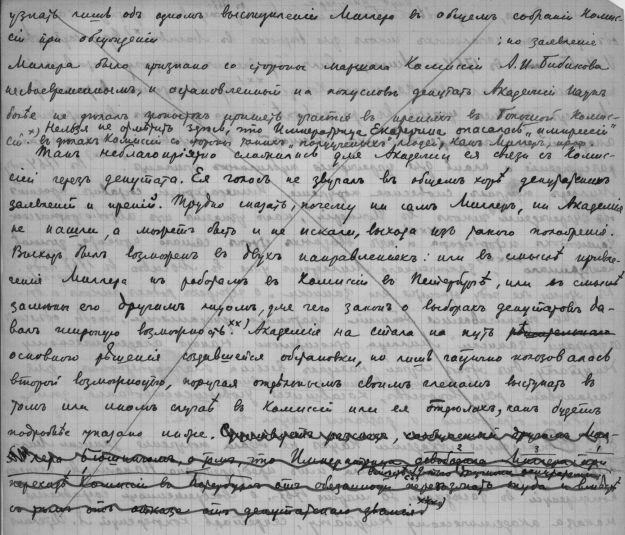 узнать лишь объ одномъ выступленіи Миллера въ общемъ собраніи Комис-
сіи при обсужденіи ; но заявленіе
Миллера было признано со стороны маршала Комиссіи А. И. Бибикова
несвоевременнымъ, и остановленный на полусловѣ депутатъ Академіи Наукъ
болѣе не дѣлалъ попытокъ принять участіе въ преніяхъ въ Большой Комис-
сіи. х) Нельзя не отмѣтить здѣсь, что Императрица Екатерина опасалась
въ дѣлахъ Комиссіи со стороны такихъ людей, какъ Миллеръ,
Такъ неблагопріятно сложились для Академіи ея связи съ Комис-
сіей черезъ депутата. Ея голосъ не звучалъ въ общемъ хорѣ депутатскихъ
заявленій и преній. Трудно сказать, почему ни самъ Миллеръ, ни Академія
не нашли, а можетъ быть и не искали, выхода изъ такого положенія.
Выходъ былъ возможенъ въ двухъ направленіяхъ: или въ смыслѣ привле-
ченія Миллера къ работамъ въ Комиссіи въ Петербургѣ, или въ смыслѣ
замѣны его другимъ лицомъ, для чего законъ о выборахъ депутатовъ да-
валъ широкую возможность. хх) Академія не стала на путь
основного рѣшенія создавшейся обстановки, но лишь частично пользовалась
второй возможностью, поручая отдѣльнымъ своимъ членамъ выступать въ
томъ или иномъ случаѣ въ Комиссіи или ея отдѣлахъ, какъ будетъ
подробнѣе указано ниже.
что Императрица
переѣздъ Комиссіи въ Петербургъ отъ обязанности
отъ отказа отъ депутатскаго званія ххх)